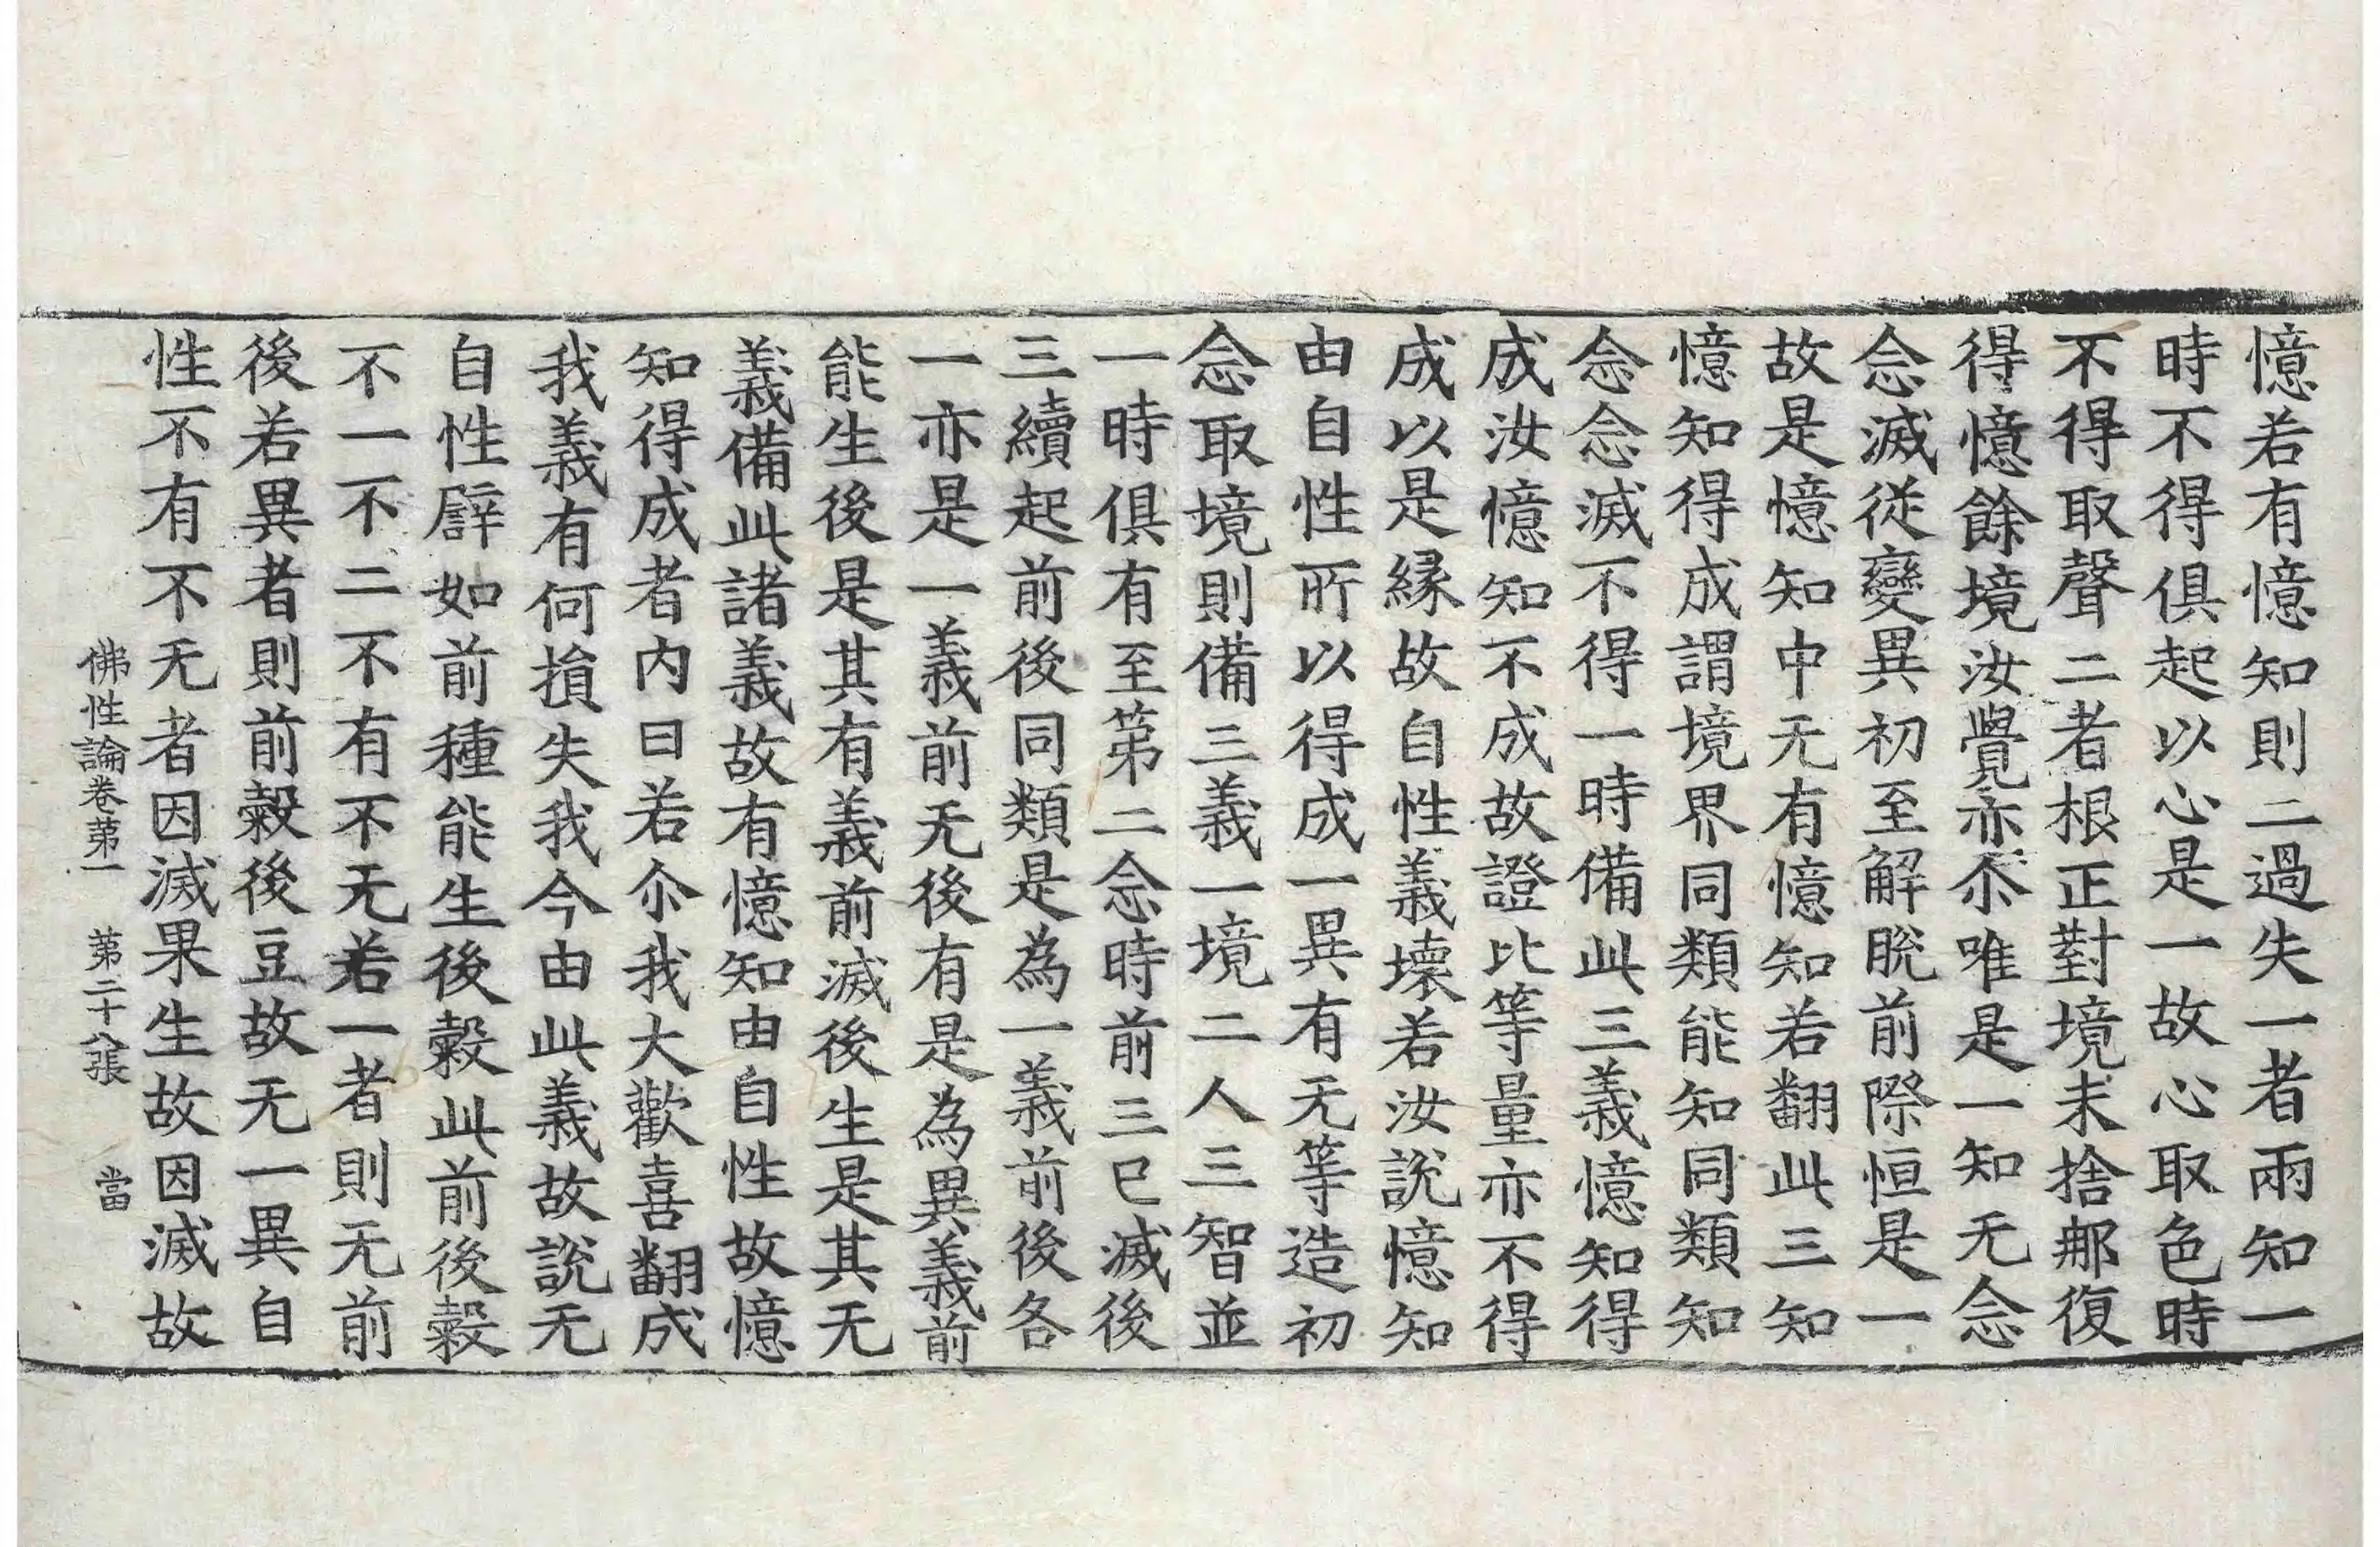 憶若有憶知則二過失一者兩知一
時不得俱起以心是一故心取色時
不得取聲二者根正對境未捨那復
得憶餘境汝覺亦尒唯是一知无念
念滅從變異初至解脫前際恒是一
故是憶知中无有憶知若翻此三知
憶知得成謂境界同類能知同類知
念念滅不得一時備此三義憶知得
成汝憶知不成故證比等量亦不得
成以是縁故自性義壞若汝說憶知
由自性所以得成一異有无等造初
念取境則備三義一境二人三智並
一時俱有至第二念時前三已滅後
三續起前後同類是為一義前後各
一亦是一義前无後有是為異義前
能生後是其有義前滅後生是其无
義備此諸義故有憶知由自性故憶
知得成者內曰若尒我大歡喜翻成
我義有何損失我今由此義故說无
自性譬如前種能生後穀此前後穀
不一不二不有不无若一者則无前
後若異者則前穀後豆故无一異自
性不有不无者因滅果生故因滅故
佛性論卷苐一　第二十八張　當